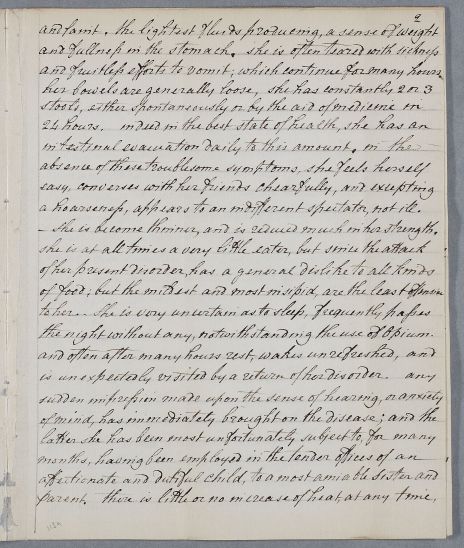 2
and faint. the lightest fluids producing, a sense of weight
and fullness in the stomach. she is often teazed with sickness
and fruitless efforts to vomit, which continue for many hours
her bowels are generally loose, she has constantly 2 or 3
stools, either spontaneously or by the aid of medicine in
24 hours. indeed in the best state of health, she has an
intestinal evacuation daily to this amount. in the
absence of these troublesome symptoms, she feels herself
easy, converses with her friends chearfully, and excepting
a hoarseness, appears to an indifferent spectator, not ill.
– she is become thinner, and is reduced much in her strength.
she is at all times a very little eater, but since the attack
of her present disorder, has a general dislike to all kinds
of food; but the mildest and most insipid, are the least
to her. – she is very uncertain as to sleep, frequently, passes
the night without any, notwithstanding the use of Opium
and often after many hours rest, wakes unrefreshed, and
is unexpectedly visited by a return of her disorder. any
sudden impression made upon the sense of hearing, or anxiety
of mind, has immediately brought on the disease; and the
latter she has been most unfortunately subject to, for many
months, having been employed in the tender offices of an
affectionate and dutiful child, to a most amiable sister and
parent. there is little or no increase of heat, at any time,